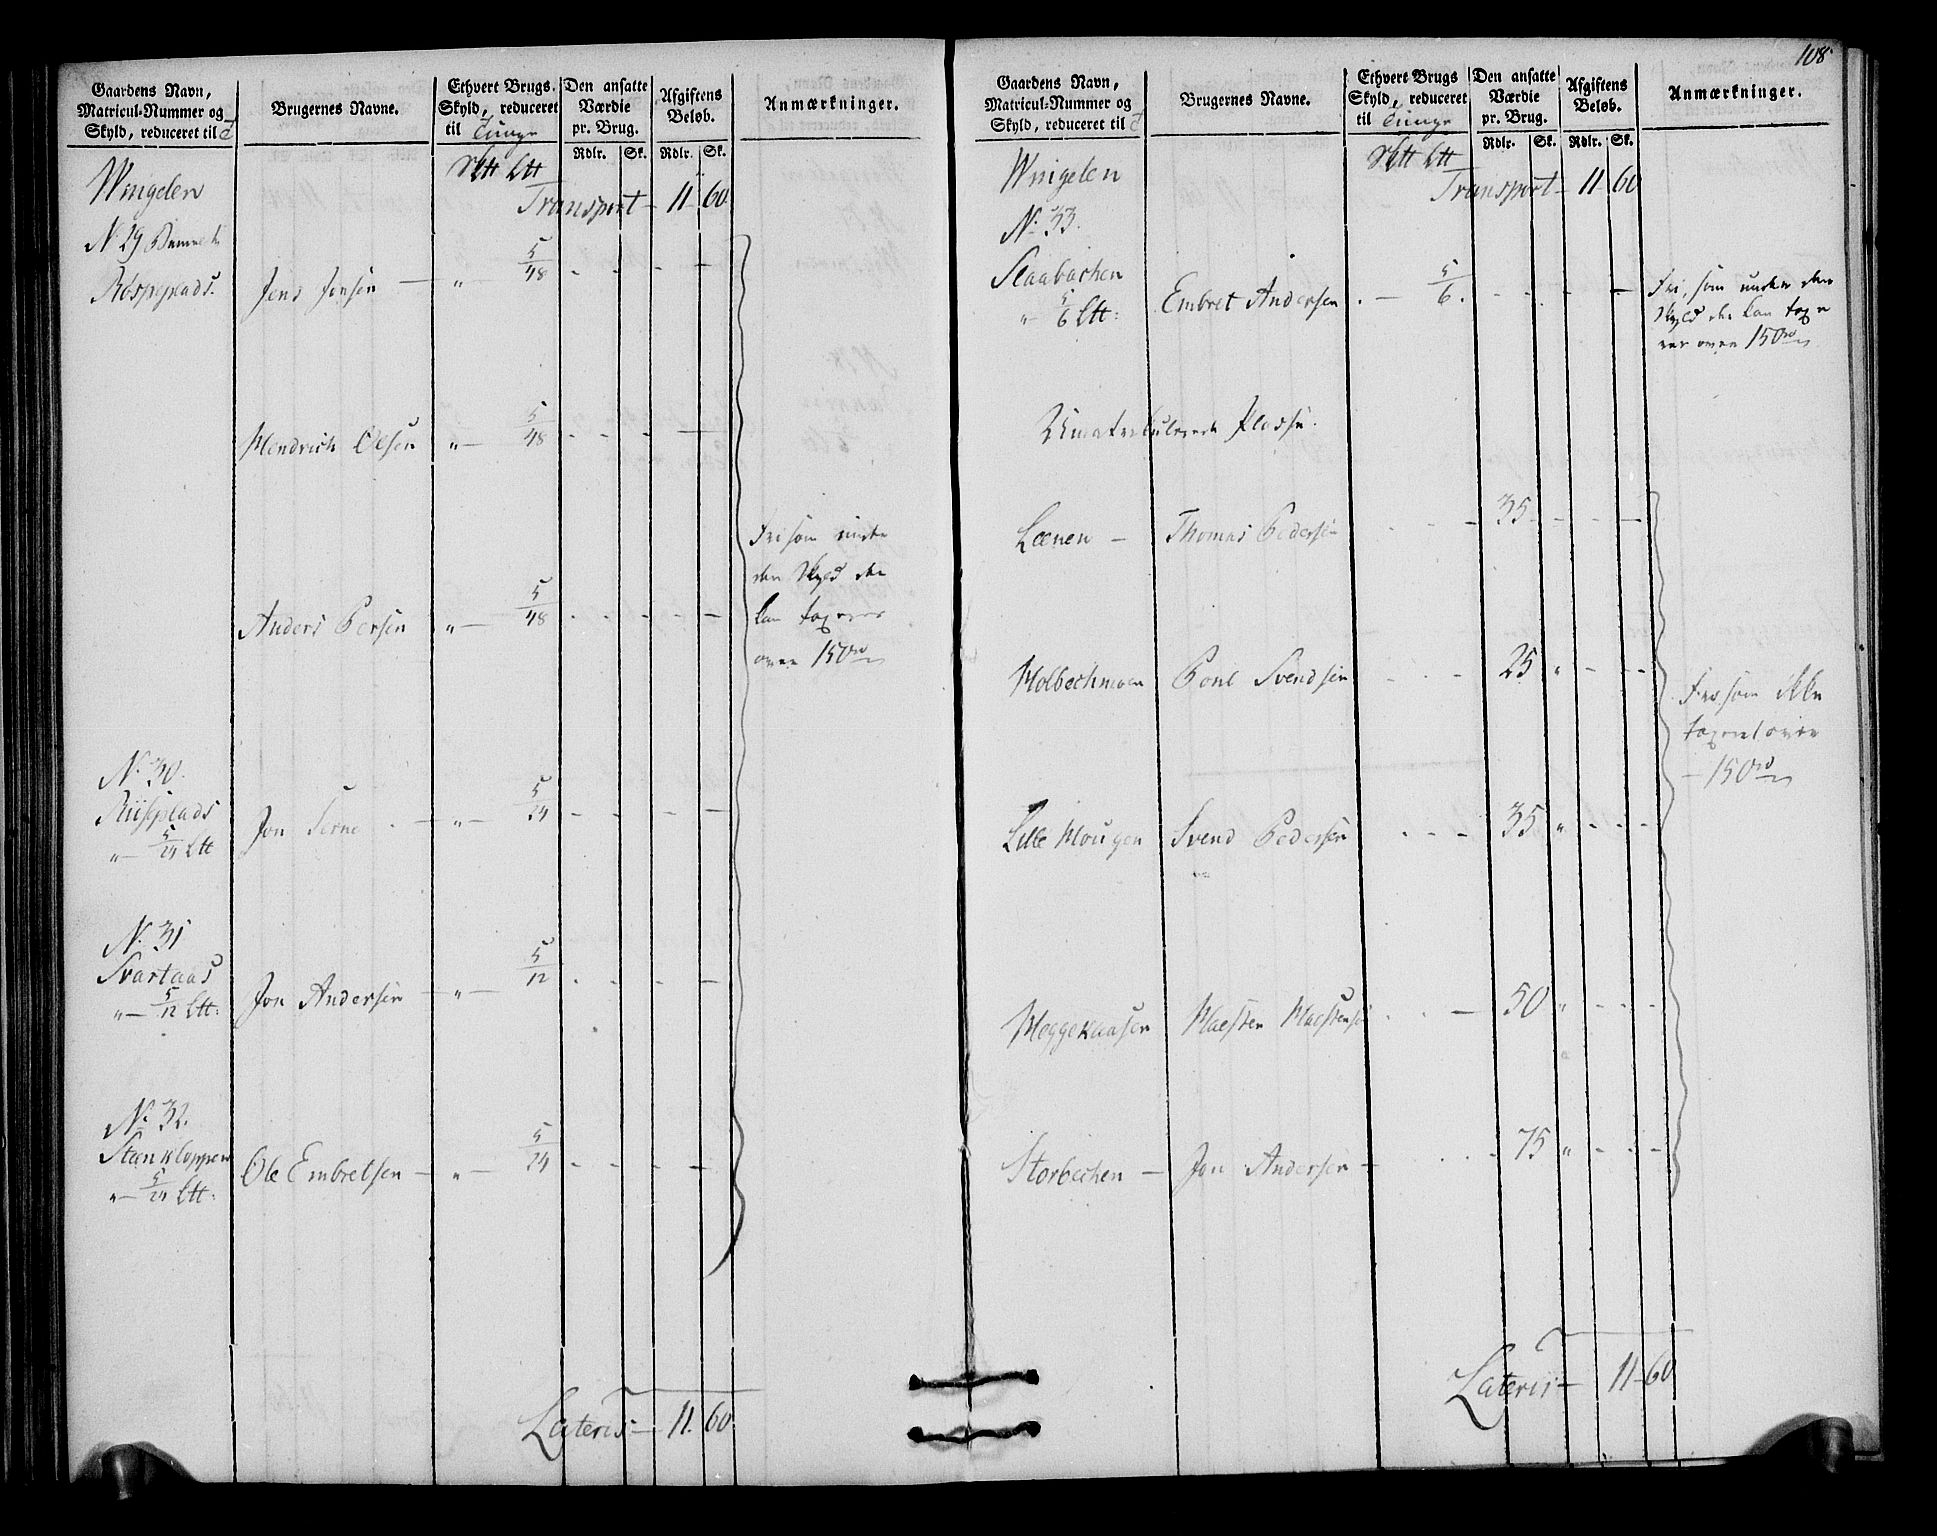 Gaardens Navn,
Matricul-Nummer og
Skyld, reduceret til
Brugernes Navne.
Ethvert Brugs
Skyld, reduceret
til Tunge
Den ansatte
Værdie
pr. Brug.
Rdlr. Sk.
Afgiftens
Beløb.
Rdlr. Sk.
Anmærkninger.
Wingelen
Transport 11 60
No 29
Røspeplads. Jens Jonsen — " — 5/48 - - - -
Hendrich Olsen " — 5/48 - - - —
Anders Persen " — 5/48 - - - - -
Fri som under
den Skyld der
kan taxeres
over 150 rd
No 30.
Riiseplads
" — 5/24 Ltt
Jon - — " — 5/24 - - - -
No 31
Svartaas
" — 5/12 Ltt:
Jon Andersen — " — 5/12 - - - -
No 32.
Steenkloppen
" — 5/24 Ltt:
Ole Embretsen — " — 5/24 - - - - -
Lateris — 11. 60.
108
Gaardens Navn,
Matricul-Nummer og
Skyld, reduceret til
Brugernes Navne.
Ethvert Brugs
Skyld, reduceret
til Tunge
Den ansatte
Værdie
pr. Brug.
Rdlr. Sk.
Afgiftens
Beløb.
Rdlr. Sk.
Anmærkninger.
Wingelen
Transport — 11 60
No 33.
Slaabachen
" 5/6 Ltt:
Embret Andersen . — 5/6. - - - - —
Fri, som under den
Skyld der kan taxe
res over 150 rd
Umatriculerede Pladse.
Leenen — Thomas Pedersen - - - 35 - - - —
Holbechmoen Poul Svendsen - - - 25 " - - -
Fri, som ikke
taxeret over
— 150 rd
Lille Mougen Svend Pedersen - - - 35 " - - -
Heggekaasen Haesten Haestensen - - — 50 " - - -
Storbechen — Jon Andersen — - - - 75 " - - -
Lateris — 11 — 60